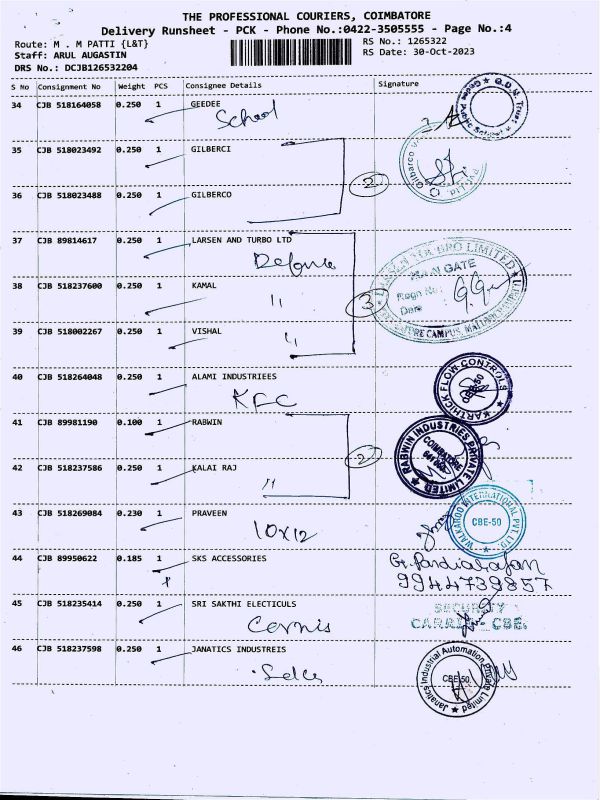 THE PROFESSIONAL COURIERS, COIMBATORE
Delivery Runsheet - PCK - Phone No.:0422-3505555 - Page No.:4
Route: M . M PATTI {L&T}
RS No.: 1265322
Staff: ARUL AUGASTIN
RS Date: 30-Oct-2023
DRS No.: DCJB126532204
S No Consignment No Weight PCS Consignee Details Signature
34 CJB 518164058 0.250 1 GEEDEE
School
35 CJB 518023492 0.250 1 GILBERCI
2
36 CJB 518023488 0.250 1 GILBERCO
37 CJB 89814617 0.250 1 LARSEN AND TURBO LTD
Defence
LARSEN TOUBRO LIMITED
MAIN GATE
Regn No:
Date
38 CJB 518237600 0.250 1 KAMAL
"
3
39 CJB 518002267 0.250 1 VISHAL
"
40 CJB 518264048 0.250 1 ALAMI INDUSTRIEES
KFC
KARTHICK FLOW CONTROLS
41 CJB 89981190 0.100 1 RABWIN
2
RABWIN INDUSTRIES PRIVATE LIMITED
COIMBATORE
42 CJB 518237586 0.250 1 KALAI RAJ
"
43 CJB 518269084 0.230 1 PRAVEEN
10x12
WALKAROO INTERNATIONAL PVT. LTD.
CBE-50
44 CJB 89950622 0.185 1 SKS ACCESSORIES
9944739857
45 CJB 518235414 0.250 1 SRI SAKTHI ELECTICULS
SECURITY
46 CJB 518237598 0.250 1 JANATICS INDUSTREIS
Janatics Industrial Automation Private Limited
CBE-50